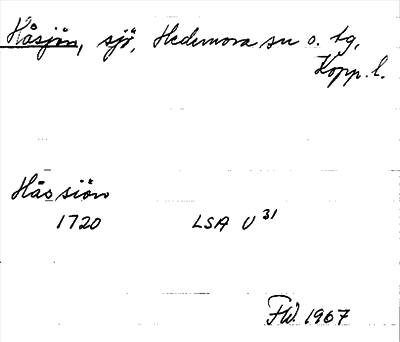 Håsjön, sjö, Hedemora sn o. tg,
Kopp. l.
Håssiön
1720 LSA U 31
FW. 1967